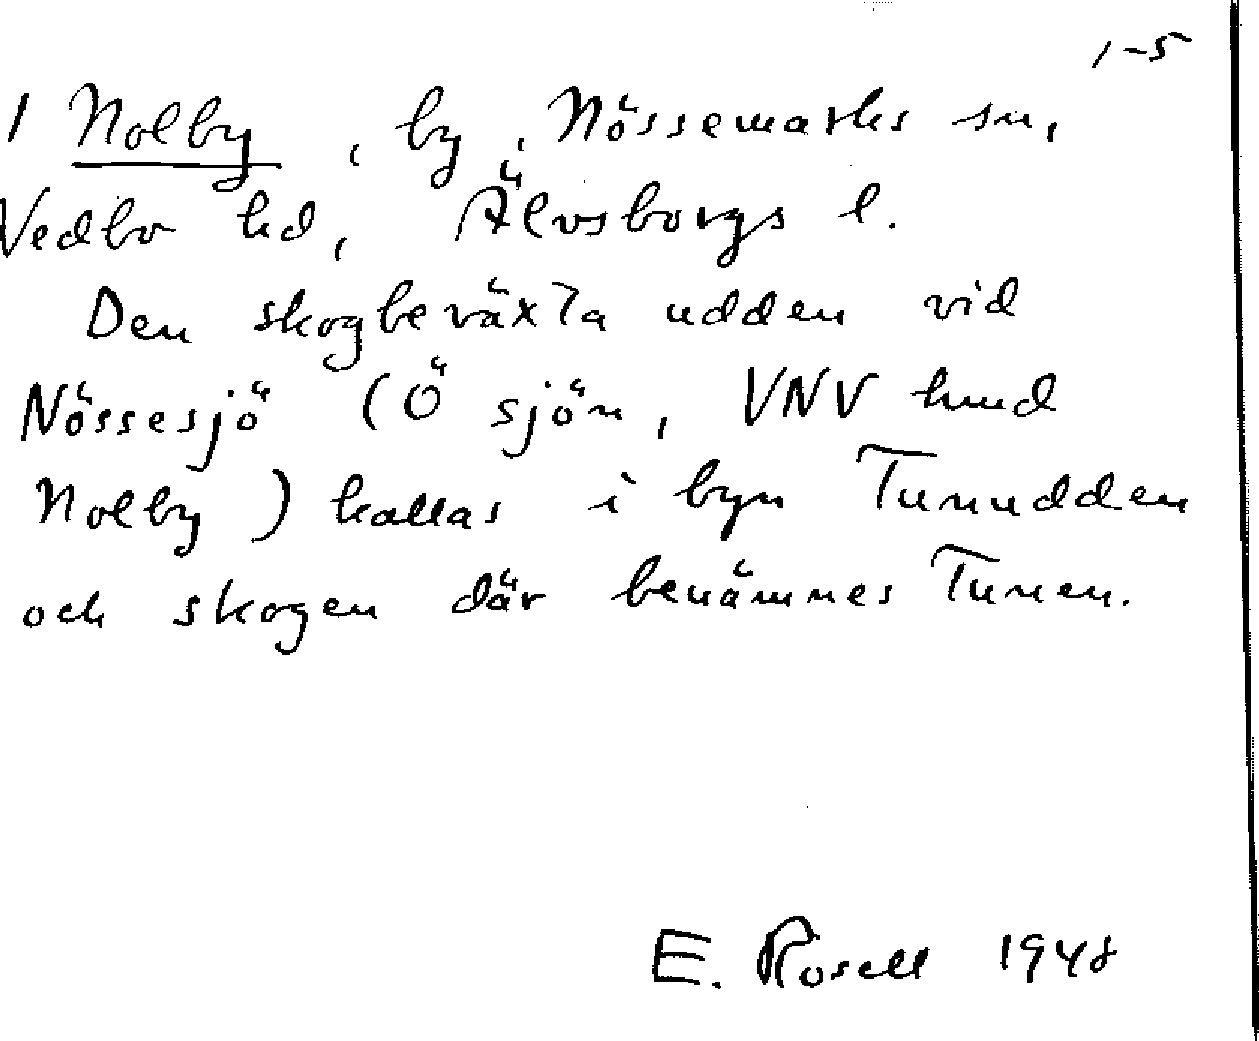 1-5
1 Nolby, by, Nössemarks sn,
Vedbo hd, Älvsborgs l.
Den skogbeväxta udden vid
Nössesjö (Ö sjön, VNV hmd
Nolby) kallas i byn Tunudden
och skogen där benämnes Tunen.
E. Rosell 1948